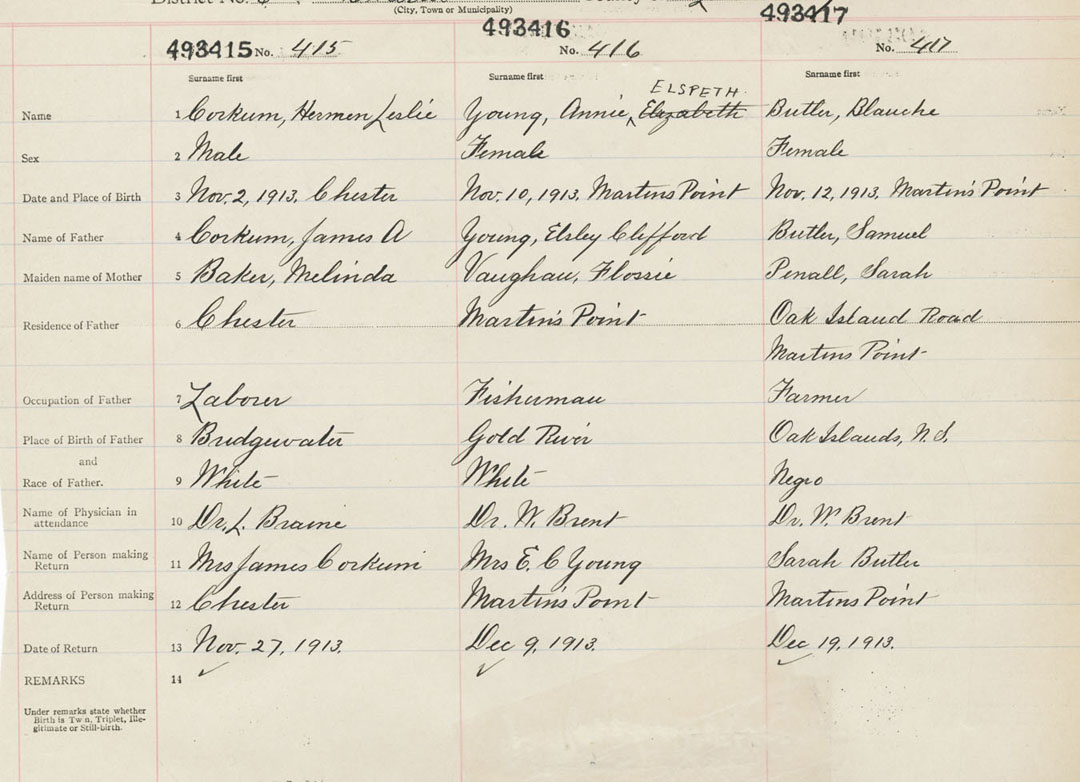 District No.
(City, Town or Municipality)
493415 No. 415
493416
No. 416
493417
No. 417
Surname first
Surname first
Surname first
Name 1 Corkum, Hermen Leslie Young, Annie, Elizabeth Butler, Blauche
ELSPETH
Sex 2 Male Female Female
Date and Place of Birth 3 Nov. 2, 1913, Chester Nov. 10, 1913, Martins Point Nov. 12, 1913, Martin's Point
Name of Father 4 Corkum, James A Young, Elsley Clifford Butler, Samuel
Maiden name of Mother 5 Baker, Melinda Vaughan, Flossie Penall, Sarah
Residence of Father 6 Chester Martin's Point Oak Island Road
Martins Point
Occupation of Father 7 Laborer Fisherman Farmer
Place of Birth of Father 8 Bridgewater Gold River Oak Islands, N.S.
and
Race of Father. 9 White White Negro
Name of Physician in
attendance 10 Dr. L. Braine Dr. W. Brent Dr. W. Brent
Name of Person making
Return 11 Mrs James Corkum Mrs E. C Young Sarah Butler
Address of Person making
Return 12 Chester Martin's Point Martins Point
Date of Return 13 Nov. 27, 1913. Dec 9, 1913. Dec 19, 1913.
REMARKS 14
Under remarks state whether
Birth is Tw n, Triplet, Ille-
gitimate or Still-birth.